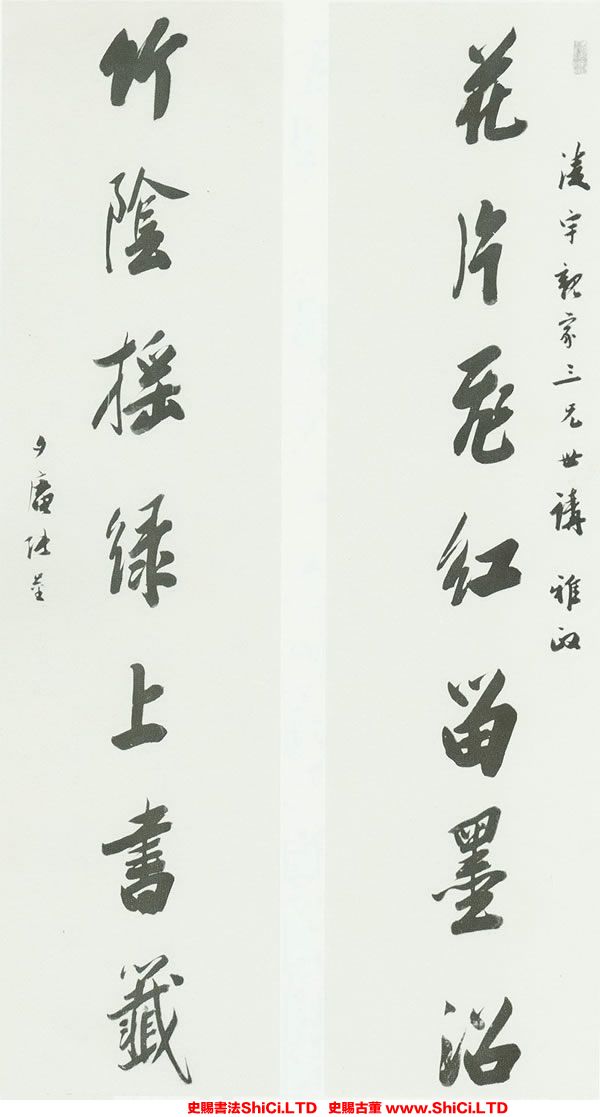 淩宇親家三兄世講 雅政
花片飛紅留墨沼
竹陰搖綠上書籤
夕庵張崟
史賜書法ShiCi.LTD 史賜古董 www.ShiCi.LTD